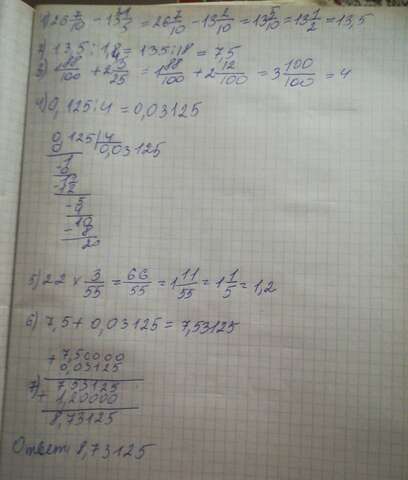 1) 26 7/10 - 13 1/5 = 26 7/10 - 13 2/10 = 13 5/10 = 13 1/2 = 13,5
2) 13,5 : 1,8 = 135 : 18 = 7,5
3) 1 88/100 + 2 3/25 = 1 88/100 + 2 12/100 = 3 100/100 = 4
4) 0,125 : 4 = 0,03125
0,125 | 4
0 0,03125
-1
0
-12
-12
-5
4
10
-8
20
5) 22 × 3/55 = 66/55 = 1 11/55 = 1 1/5 = 1,2
6) 7,5 + 0,03125 = 7,53125
+ 7,50000
0,03125
7) 7,53125
+ 1,20000
8,73125
Ответ: 8,73125